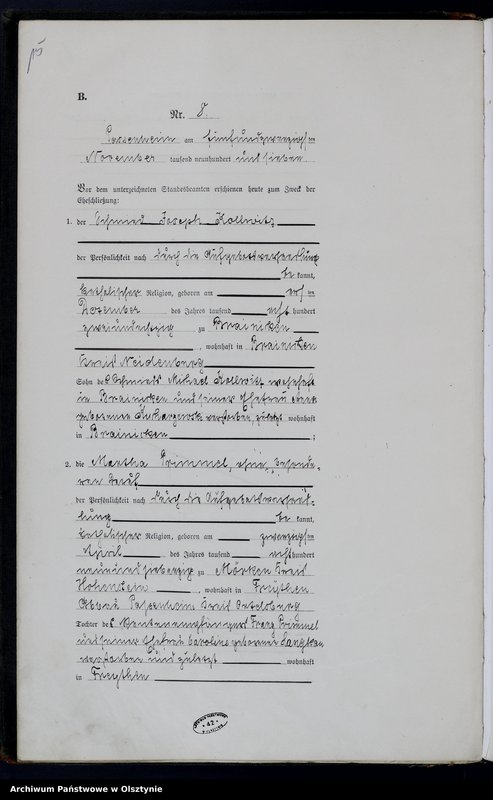 15
B.
Nr. 8.
Passenheim am fünfundzwanzigsten
November tausend neunhundert und sieben.
Vor dem unterzeichneten Standesbeamten erschienen heute zum Zweck der
Eheschließung:
1. der Schmied Joseph Kollwitz
der Persönlichkeit nach durch die Aufgebotsverhandlung
be kannt,
katholischer Religion, geboren am elften
Dezember des Jahres tausend acht hundert
zweiundachtzig zu Brainicken
, wohnhaft in Brainicken
Kreis Neidenburg
Sohn des Schmieds Michael Kollwitz wohnhaft
in Brainicken und seiner Ehefrau
geborenen verstorben, zuletzt wohnhaft
in Brainicken ;
2. die Martha Primmel, ohne besonde-
ren Beruf
der Persönlichkeit nach durch die Aufgebotsverhand-
lung be kannt,
katholischer Religion, geboren am zwanzigsten
April des Jahres tausend acht hundert
neunundsiebenzig zu Mörken Kreis
Hohenstein , wohnhaft in Freythen
Abbau Passenheim Kreis Ortelsburg
Tochter des Franz Primmel
und seiner Ehefrau Caroline geborenen Langkau
verstorben und zuletzt wohnhaft
in Freythen
ARCHIWUM PAŃSTWOWE
* 42 *
W OLSZTYNIE
Archiwum Państwowe w Olsztynie